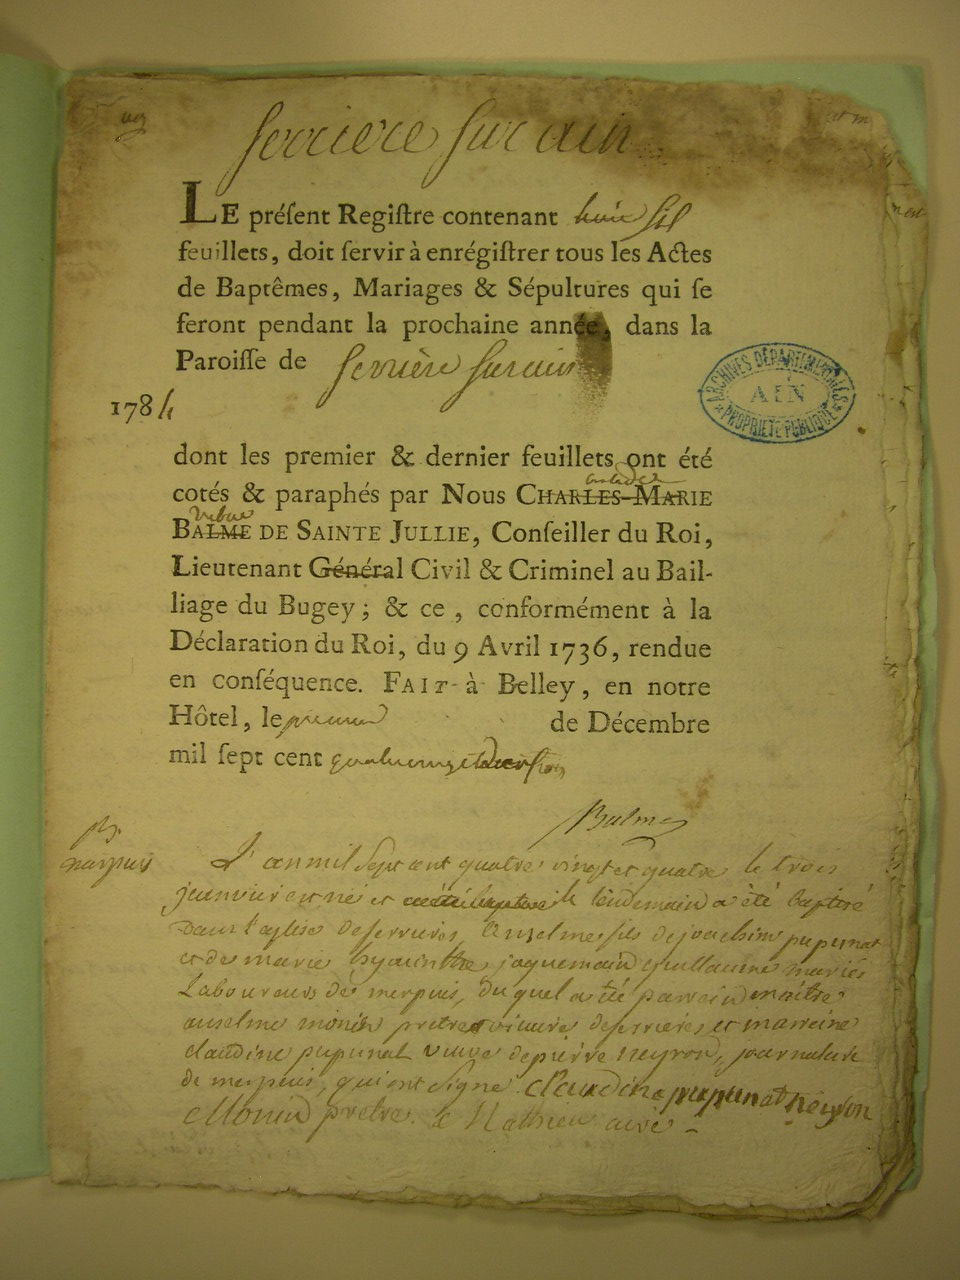 serriere sur ain
LE préſent Regiſtre contenant huit
feuillets, doit ſervir à enrégiſtrer tous les Actes
de Baptêmes, Mariages & Sépultures qui ſe
feront pendant la prochaine année, dans la
Paroiſſe de serrière sur ain
1784
ARCHIVES DÉPARTEMENTALES
AIN
PROPRIÉTÉ PUBLIQUE
dont les premier & dernier feuillets ont été
cotés & paraphés par Nous CHARLES-MARIE
BALME DE SAINTE JULLIE, Conſeiller du Roi,
Lieutenant Général Civil & Criminel au Bail-
liage du Bugey; & ce, conformément à la
Déclaration du Roi, du 9 Avril 1736, rendue
en conſéquence. FAIT à Belley, en notre
Hôtel, le premier de Décembre
mil ſept cent quatrevingt
Balme
L'an mil sept cent quatre vingt et quatre le trois
janvier est né et le lendemain a été baptisé
dans l'eglise de serrieres, Anzelme fils de joachim pupunat
et de marie hyacinthe jaquemain guillaume mariés
Laboureurs de merpuis, du quel a été parrain maitre
anselme monin pretre vicaire de serrieres et marreine
claudine pupunat veuve de pierre neyron, journaliere
de merpuis, qui ont signé claudine pupunat neyron
Monin pretre. Mathieu curé